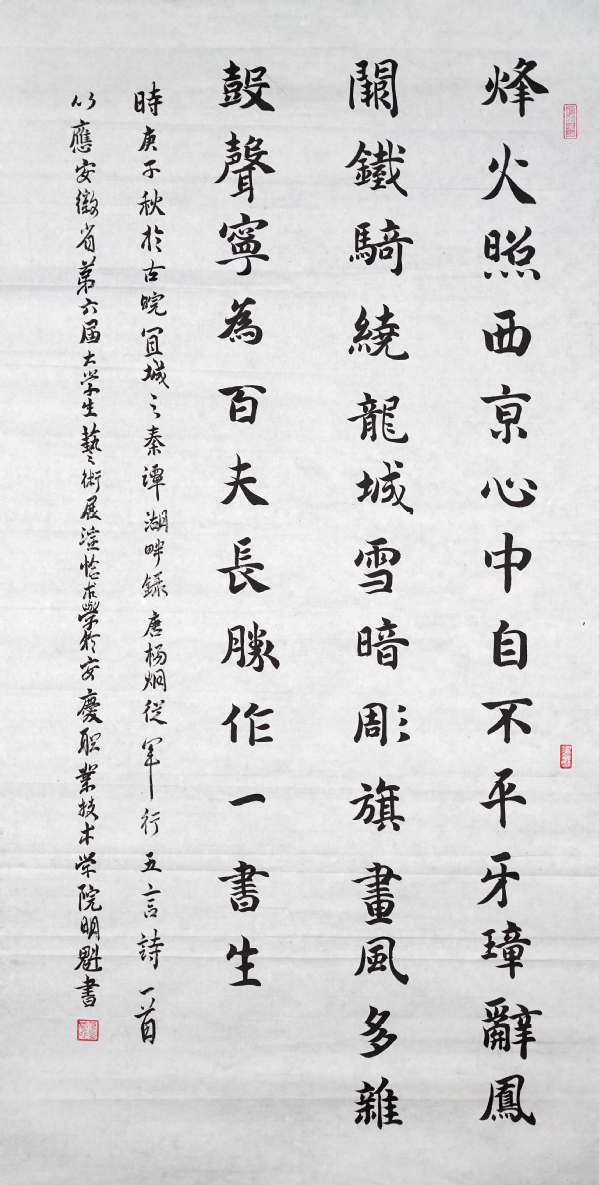 烽火照西亰心中自不平牙璋辭鳳
闕鐵騎繞龍城雪暗彫旗畫風多雜
鼓聲寧為百夫長勝作一書生
時庚子秋於古皖宜城之秦潭湖畔錄唐楊炯從軍行五言詩一首
以應安徽省第六届大学生藝術展學於安慶职業技术学院明魁書